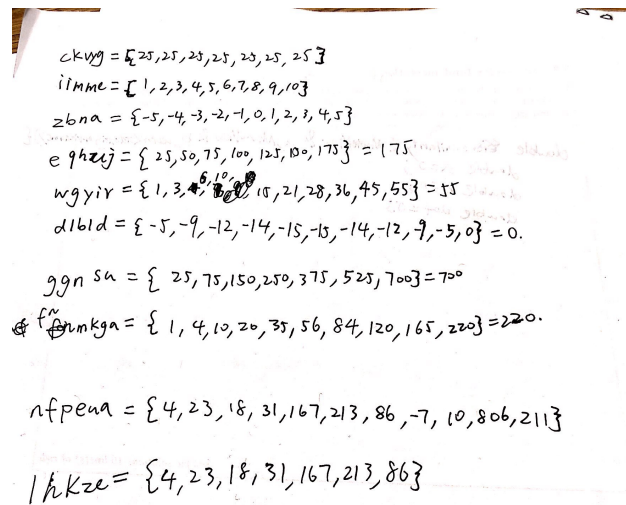 ckvyg = {25,25,25,25,25,25,25}
iimme = {1,2,3,4,5,6,7,8,9,10}
zbna = {-5,-4,-3,-2,-1,0,1,2,3,4,5}
eghxij = {25,50,75,100,125,150,175} = 175
wgyir = {1,3,6,10,15,21,28,36,45,55} = 55
dlbld = {-5,-9,-12,-14,-15,-15,-14,-12,-9,-5,0} = 0.
ggnsu = {25,75,150,250,375,525,700} = 700
fnmkga = {1,4,10,20,35,56,84,120,165,220} = 220.
nfpeua = {4,23,18,31,167,213,86,-7,10,806,211}
lhkze = {4,23,18,31,167,213,86}